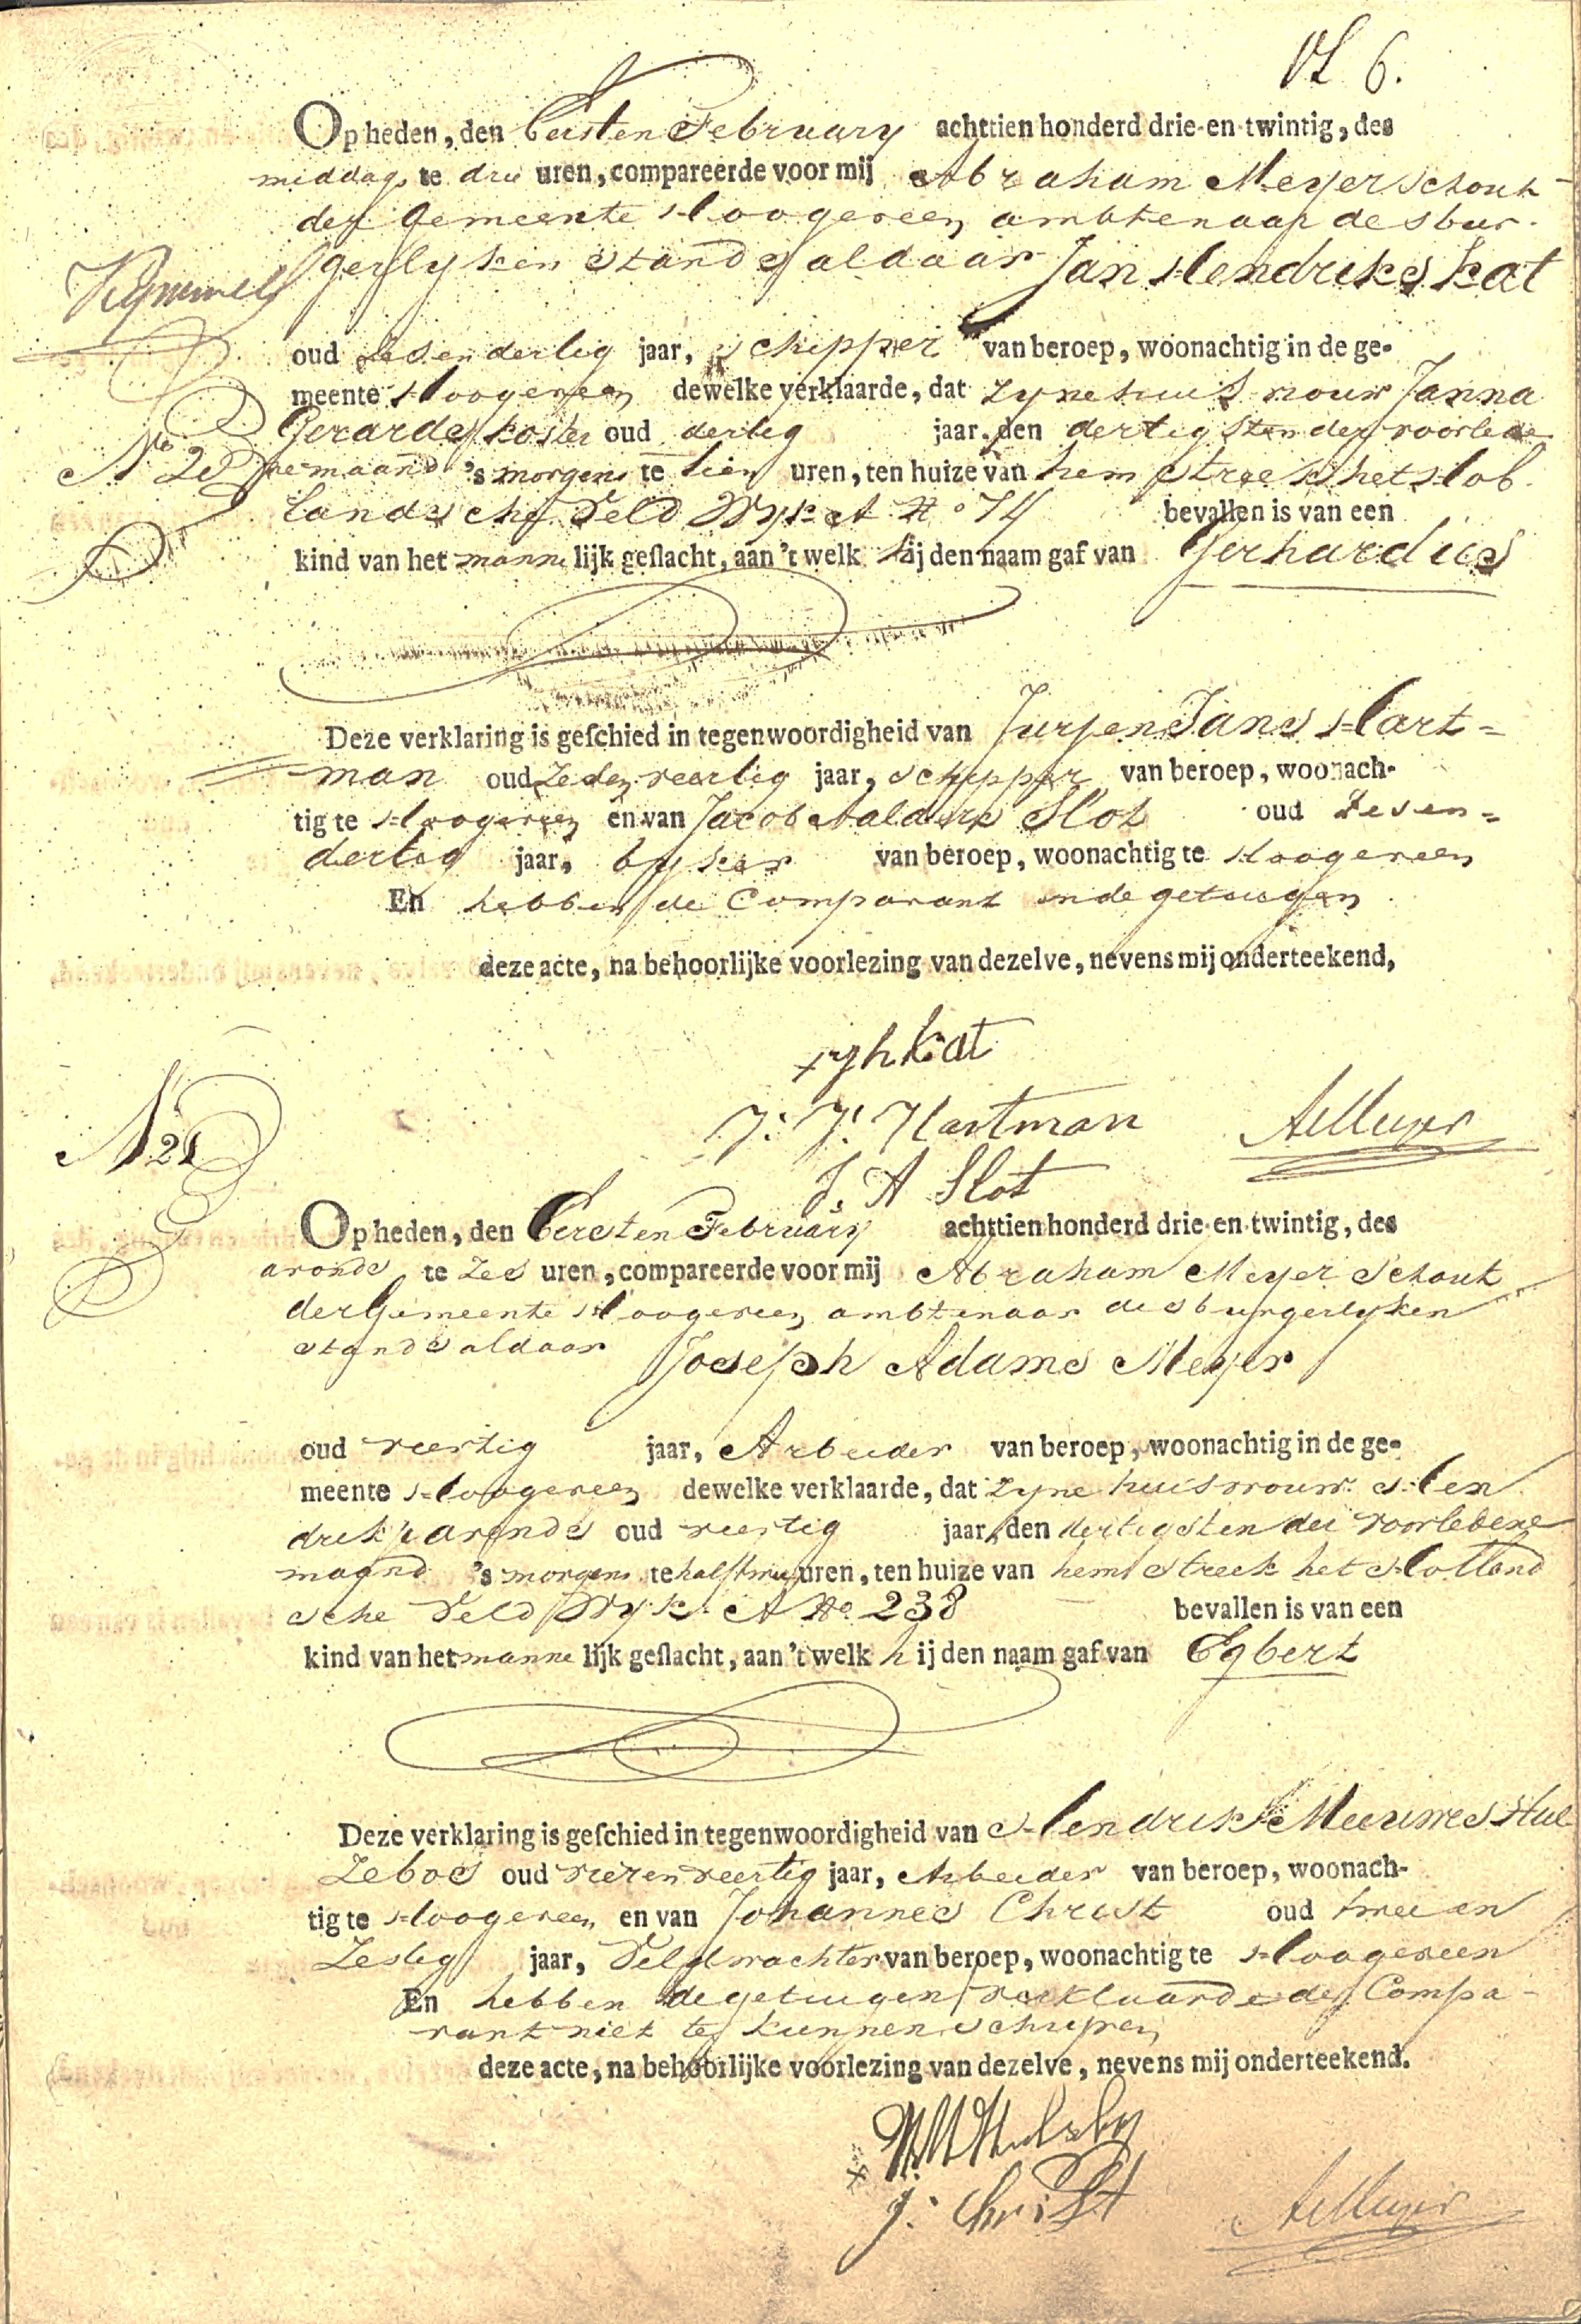 Vl 6.
Op heden, den Eersten February achttien honderd drie-en-twintig, des
middags te drie uren, compareerde voor mij Abraham Meyer Schout
der Gemeente Hoogeveen ambtenaar des bur-
gerlyken Stands aldaar Jan Hendriks Kat
Kymmell
oud zesendertig jaar, Schipper van beroep, woonachtig in de ge-
meente Hoogeveen dewelke verklaarde, dat zyne huisvrouw Janna
Gerardes Koster oud dertig jaar, den dertigsten der voorlede
No 20
ne maand 's morgens te tien uren, ten huize van hem Streek het Hol-
landsche Veld Wyk A No 74 bevallen is van een
kind van het mannelijk geslacht, aan 't welk hij den naam gaf van Gerhardus
Deze verklaring is geschied in tegenwoordigheid van Jurjen Jans Hart-
man oud Zeven veertig jaar, Schipper van beroep, woonach-
tig te Hoogeveen en van Jacob Aalders Slot oud Zesen-
dertig jaar, van beroep, woonachtig te Hoogeveen
En hebben de Comparant en de getuigen
deze acte, na behoorlijke voorlezing van dezelve, nevens mij onderteekend,
x jh Kat
J: J: Hartman AMeyer
J. A Slot
N 21
Op heden, den Eersten February achttien honderd drie-en-twintig, des
avonds te Zes uren, compareerde voor mij Abraham Meyer Schout
der Gemeente Hoogeveen ambtenaar des burgerlyken
stands aldaar Joseph Adams Meyer
oud veertig jaar, Arbeider van beroep, woonachtig in de ge-
meente Hoogeveen dewelke verklaarde, dat zyne huisvrouw Hen
drikje Arends oud veertig jaar, den dertigsten der voorledene
maand 's morgens te half twee uren, ten huize van hem Streek het Holland
sche Veld Wyk A No 238 bevallen is van een
kind van het mannelijk geslacht, aan 't welk hij den naam gaf van Egbert
Deze verklaring is geschied in tegenwoordigheid van Hendrik Meeuwes Hul
zebos oud vierenveertig jaar, Arbeider van beroep, woonach-
tig te Hoogeveen en van Johannes Christ oud twee en
Zestig jaar, Veldwachter van beroep, woonachtig te Hoogeveen
En hebben de getuigen verklaarde de Compa-
rant niet te kunnen schryven
deze acte, na behoorlijke voorlezing van dezelve, nevens mij onderteekend.
x
j: Christ AMeyer